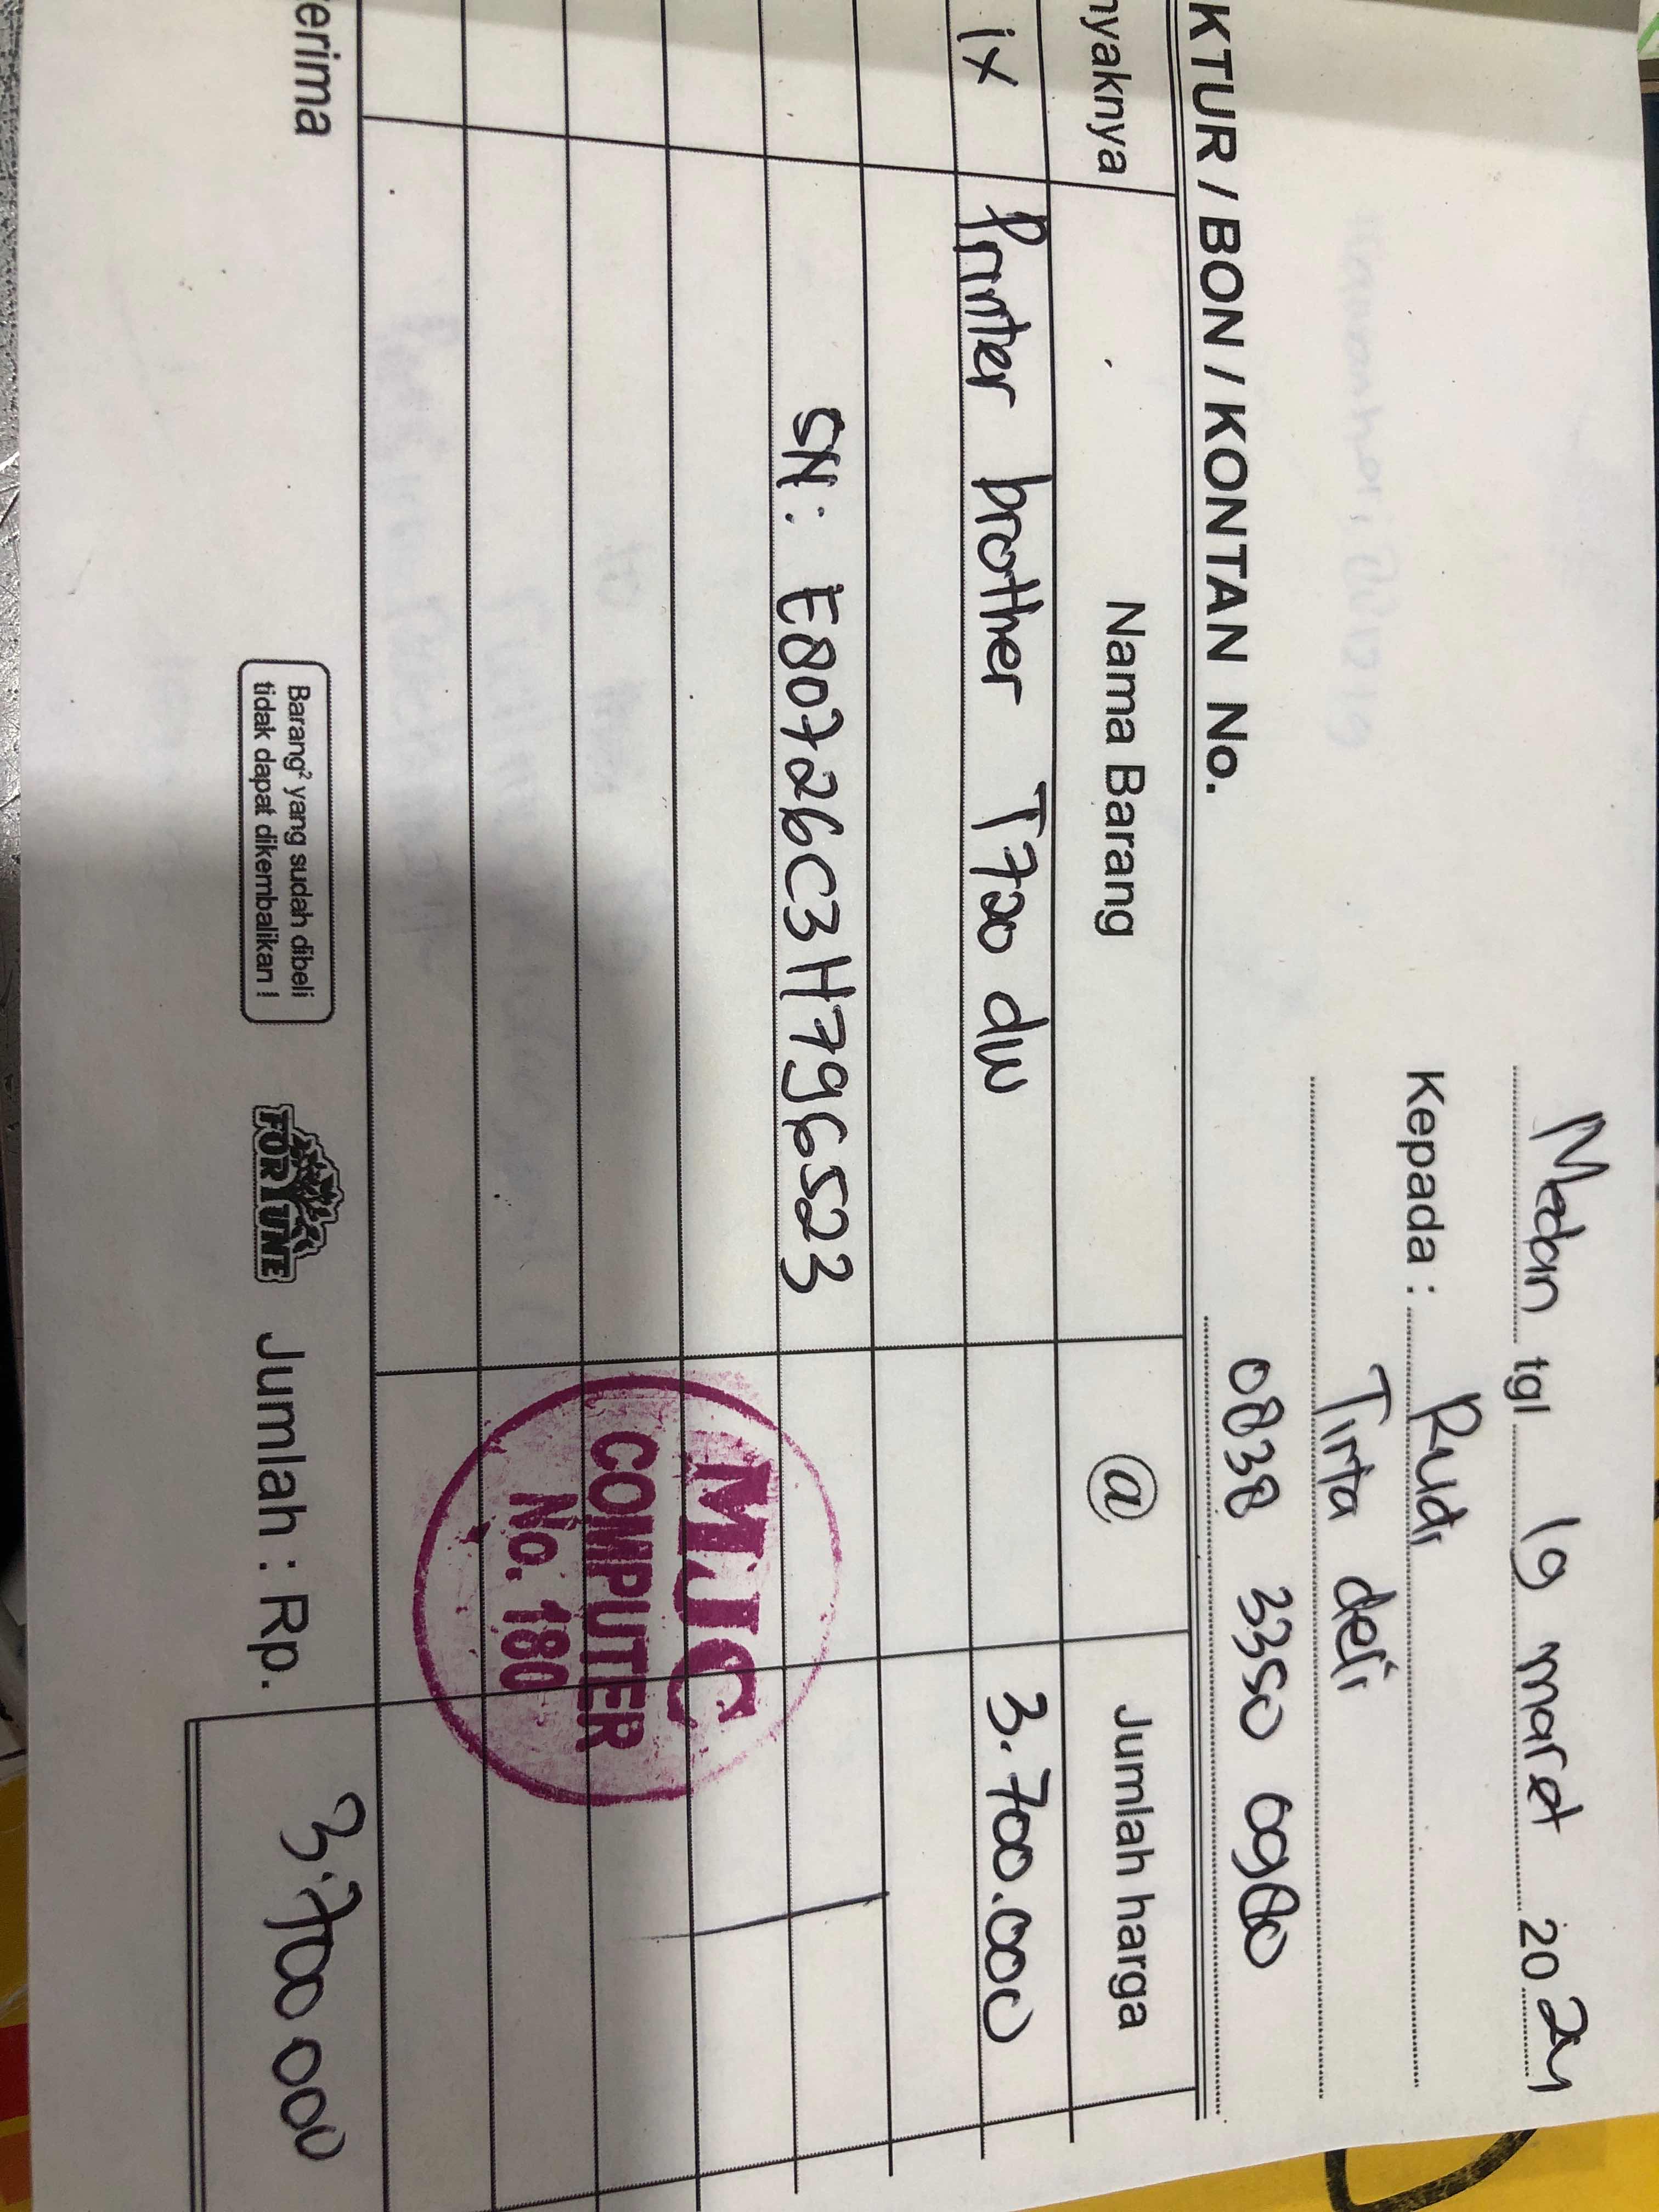 Medan tgl 19 maret 2024
Kepada : Rudi
Tirta deli
0838 3350 0980
KTUR / BON / KONTAN No.
nyaknya Nama Barang @ Jumlah harga
1x Printer brother T720 dw 3.700.000
SN: E80726C3H796523
MJC
COMPUTER
No. 180
erima
Barang² yang sudah dibeli
tidak dapat dikembalikan !
FORTUNE
Jumlah : Rp. 3.700 000